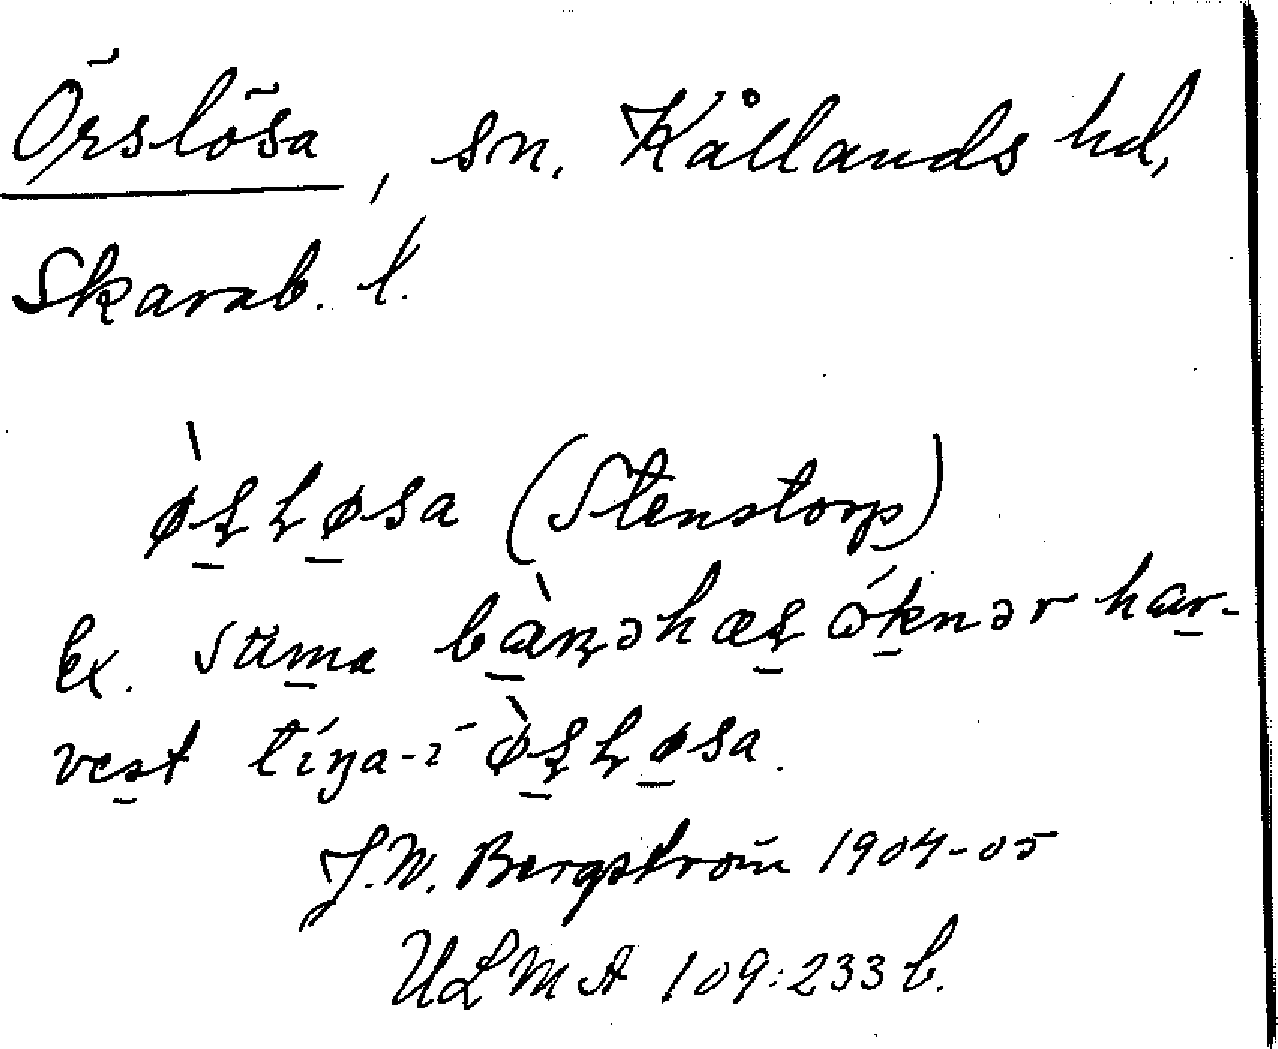 Örslösa, sn. Kållands hd,
Skarab. l.
ø̀ʂɭøsa (Stenstorp)
Ex. sama bàɳəhæʂ öknər har-
vest tíŋa-í ø̀ʂɭøsa.
J.W. Bergström 1904-05
ULMA 109:233 b.